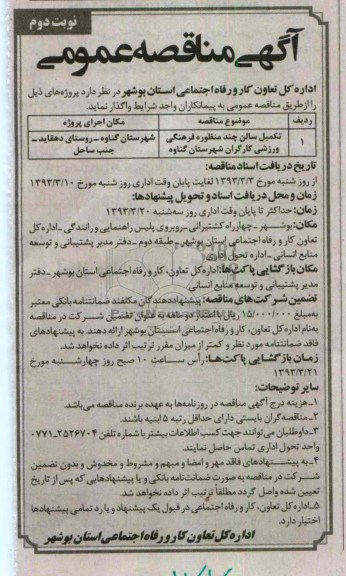 نوبت دوم
آگهی مناقصه عمومی
اداره کل تعاون کار و رفاه اجتماعی استان بوشهر در نظر دارد پروژه‌های ذیل
را از طریق مناقصه عمومی به پیمانکاران واجد شرایط واگذار نماید.
ردیف موضوع مناقصه مکان اجرای پروژه
۱ تکمیل سالن چند منظوره فرهنگی ورزشی کارگران شهرستان گناوه شهرستان گناوه ـ روستای دهقاید ـ جنب ساحل
تاریخ دریافت اسناد مناقصه:
از روز شنبه مورخ ۱۳۹۳/۳/۳ لغایت پایان وقت اداری روز شنبه مورخ ۱۳۹۳/۳/۱۰
زمان و محل دریافت اسناد و تحویل پیشنهادها:
زمان: حداکثر تا پایان وقت اداری روز سه‌شنبه ۱۳۹۳/۳/۲۰
مکان: بوشهر ـ چهارراه کشتیرانی ـ روبروی پلیس راهنمایی و رانندگی ـ اداره کل
تعاون کار و رفاه اجتماعی استان بوشهر ـ طبقه دوم ـ دفتر مدیر پشتیبانی و توسعه
منابع انسانی ـ اداره تحول اداری
مکان بازگشایی پاکت‌ها: اداره کل تعاون، کار و رفاه اجتماعی استان بوشهر ـ دفتر
مدیر پشتیبانی و توسعه منابع انسانی
تضمین شرکت‌های مناقصه: پیشنهاددهندگان مکلفند ضمانتنامه بانکی معتبر
به‌مبلغ ۱۵/۰۰۰/۰۰۰ ریال با اعتبار دو ماهه به عنوان تضمین شرکت در مناقصه
به‌نام اداره کل تعاون، کار و رفاه اجتماعی استان بوشهر ارائه دهند. به پیشنهادهای
فاقد ضمانتنامه مورد نظر و کمتر از میزان مقرر ترتیب اثر داده نخواهد شد.
زمان بازگشایی پاکت‌ها: رأس ساعت ۱۰ صبح روز چهارشنبه مورخ
۱۳۹۳/۳/۲۱
سایر توضیحات:
۱ـ هزینه درج آگهی مناقصه در روزنامه‌ها به عهده برنده مناقصه می‌باشد.
۲ـ مناقصه‌گران بایستی دارای حداقل رتبه ۵ ابنیه باشند.
۳ـ داوطلبان می‌توانند جهت کسب اطلاعات بیشتر با شماره تلفن ۲۵۲۶۷۰۴-۰۷۷۱
واحد تحول اداری تماس حاصل نمایند.
۴ـ به پیشنهادهای فاقد مهر و امضا و مبهم و مشروط و مخدوش و بدون تضمین
شرکت در مناقصه به صورت ضمانت‌نامه بانکی و یا پیشنهادهایی که پس از تاریخ
تعیین شده واصل گردد مطلقاً ترتیب اثر داده نخواهد شد.
۵ـ اداره کل تعاون، کار و رفاه اجتماعی در قبول یک پیشنهاد و یا رد تمامی پیشنهادها
اختیار دارد.
اداره کل تعاون کار و رفاه اجتماعی استان بوشهر